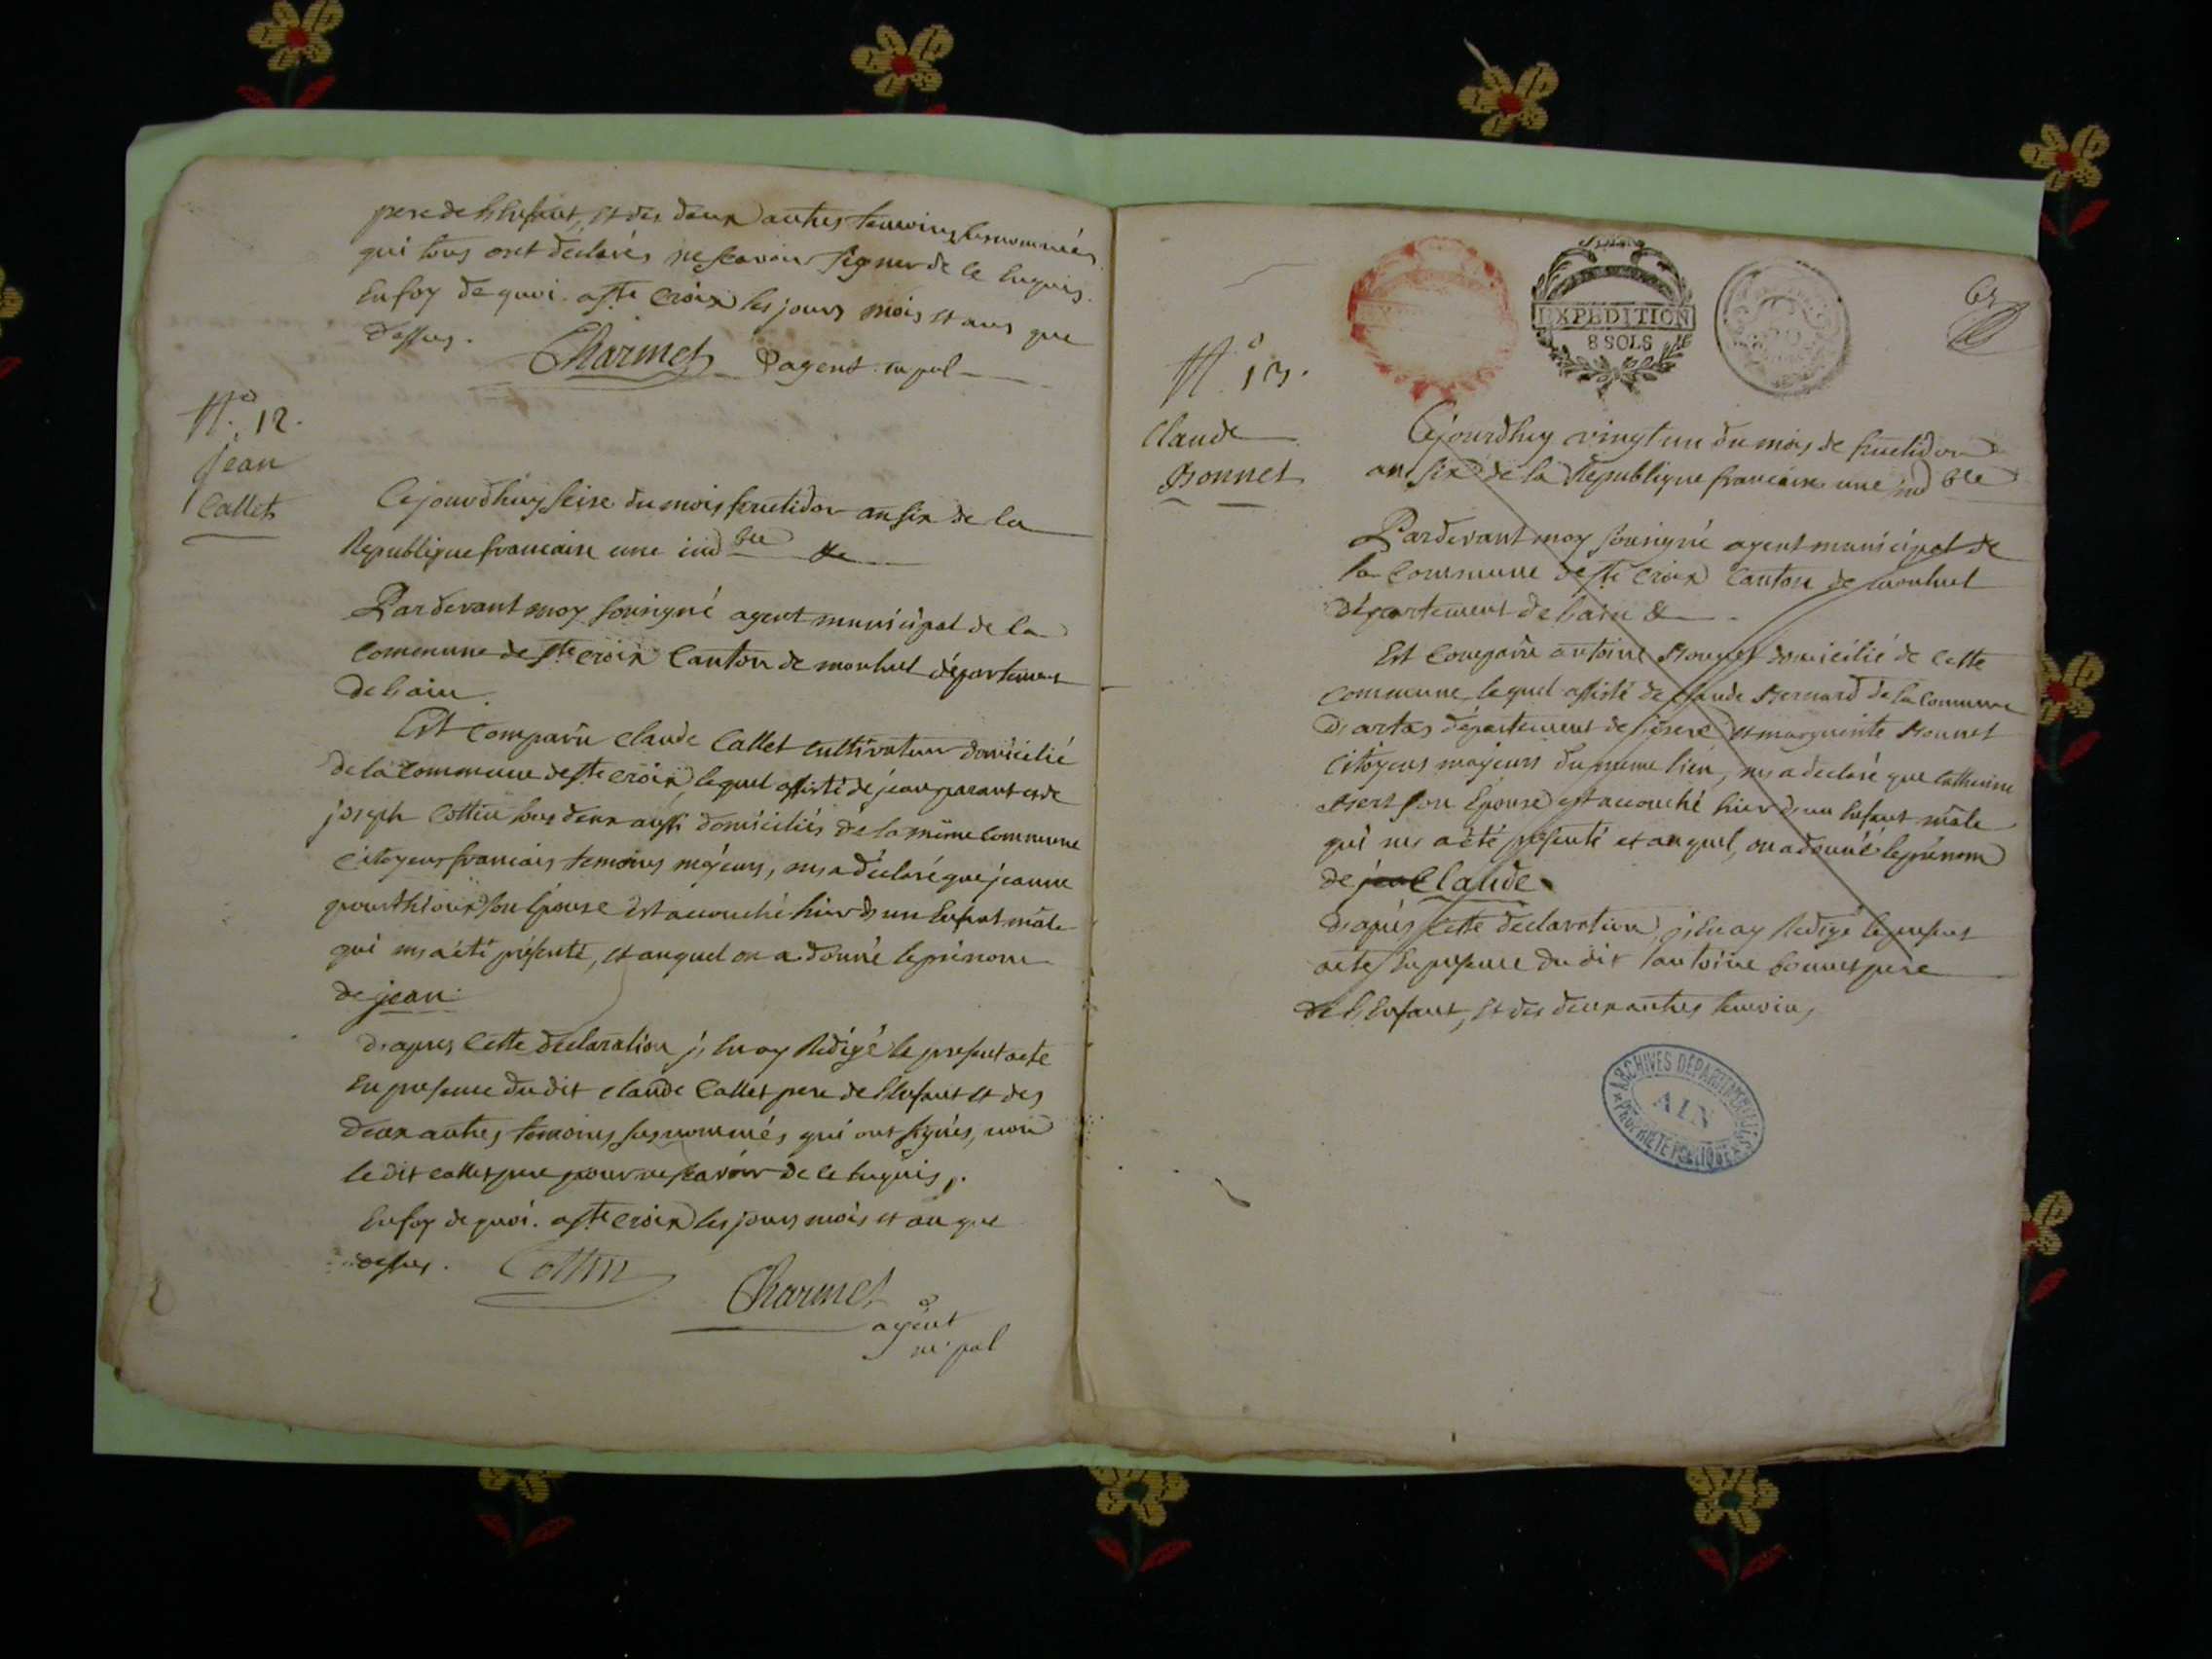 pere de l'Enfant, et des deux autres temoins susnommés
qui tous ont déclarés ne scavoir signer de ce Enquis.
En foy de quoi. a Ste Croix les jours mois et ans que
dessus.
Charmet agent m.pal
N.° 12.
jean
Callet
Cejourdhuy seise du mois fructidor an six de la
Republique francaise une ind ble &c
Pardevant moy sousigné agent municipal de la
Commune de Ste croix Canton de montluel département
de l'ain.
Est Comparû claude Callet cultivateur domicilié
de la Commune de Ste croix, lequel assisté de jean et de
joseph Cottin tous deux aussi domiciliés de la même Commune
Citoyens francais temoins majeurs, m'a déclaré que jeanne
son Epouse est accouché hier d'un Enfant mâle
qui m'a été présenté, et auquel on a donné le prénom
de jean.
d'apres Cette declaration j'en ay Redigé le present acte
En presence du dit claude Callet pere de l'Enfant et des
deux autres temoins susnommés qui ont signés, non
le dit Callet pere pour ne scavoir de ce Enquis,.
En foy de quoi. a Ste croix les jours mois et an que
dessus. Cottin
Charmet
agent
m. pal
EXPEDITION
8 SOLS
N° 13.
Claude
Bonnet
Cejourdhuy vingt un du mois de fructidor
an six de la Republique francaise une ind ble
Pardevant moy sousigné agent municipal de
la Commune de Ste Croix Canton de montluel
département de l'ain &
Est Comparû antoine Bonnet domicilié de Cette
commune, lequel assisté de Claude Bernard de la Commune
d'artas département de l'isere et marguerite Bonnet
Citoyens majeurs du meme lieu, m'a declaré que Catherine
son Epouse est accouché hier d'un Enfant mâle
qui m'a été présenté et auquel, on a donné le prénom
de Claude
d'après Cette declaration, j'en ay Redigé le present
acte En presence du dit antoine bonnet pere
de l'Enfant, et des deux autres temoins
ARCHIVES DEPARTEMENTALES
AIN
PROPRIETE PUBLIQUE